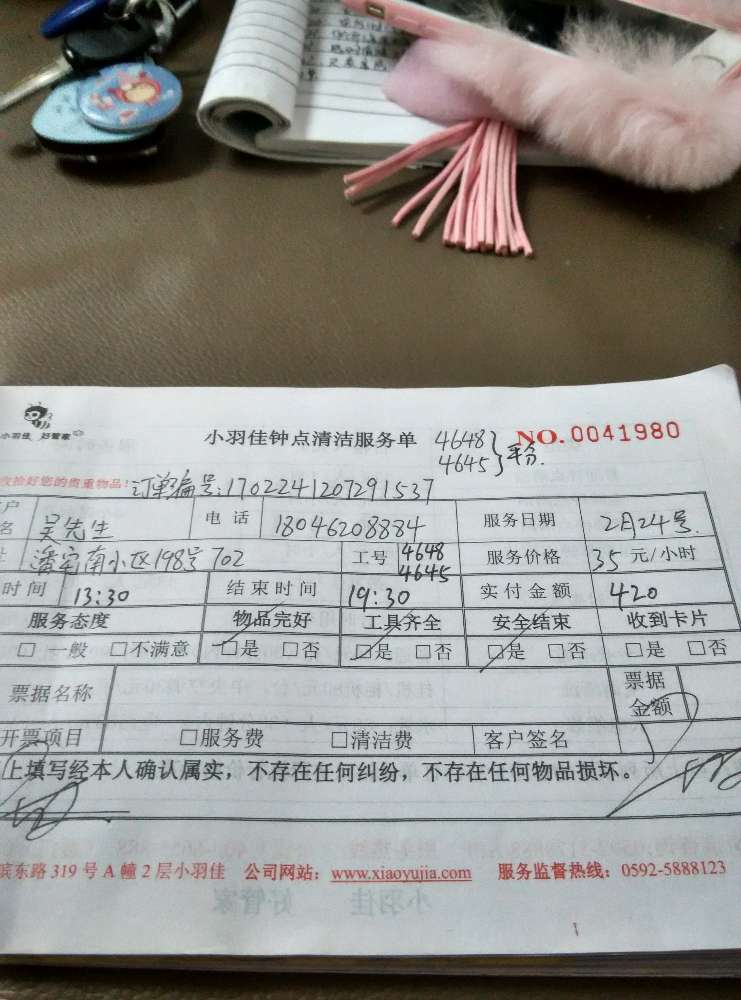 小羽佳 好管家
小羽佳钟点清洁服务单 4648 4645 平分. NO. 0041980
收拾好您的贵重物品! 订单编号:1702241207291537
户名 吴先生 电话 18046208884 服务日期 2月24号
南小区198号702 工号 4648 4645 服务价格 35元/小时
时间 13:30 结束时间 19:30 实付金额 420
服务态度 物品完好 工具齐全 安全结束 收到卡片
□ 一般 □不满意 □是 □否 □是 □否 □是 □否 □是 □否
票据名称 票据金额
开票项目 □服务费 □清洁费 客户签名
上填写经本人确认属实，不存在任何纠纷，不存在任何物品损坏。
滨东路319号A幢2层小羽佳 公司网站：www.xiaoyujia.com 服务监督热线：0592-5888123